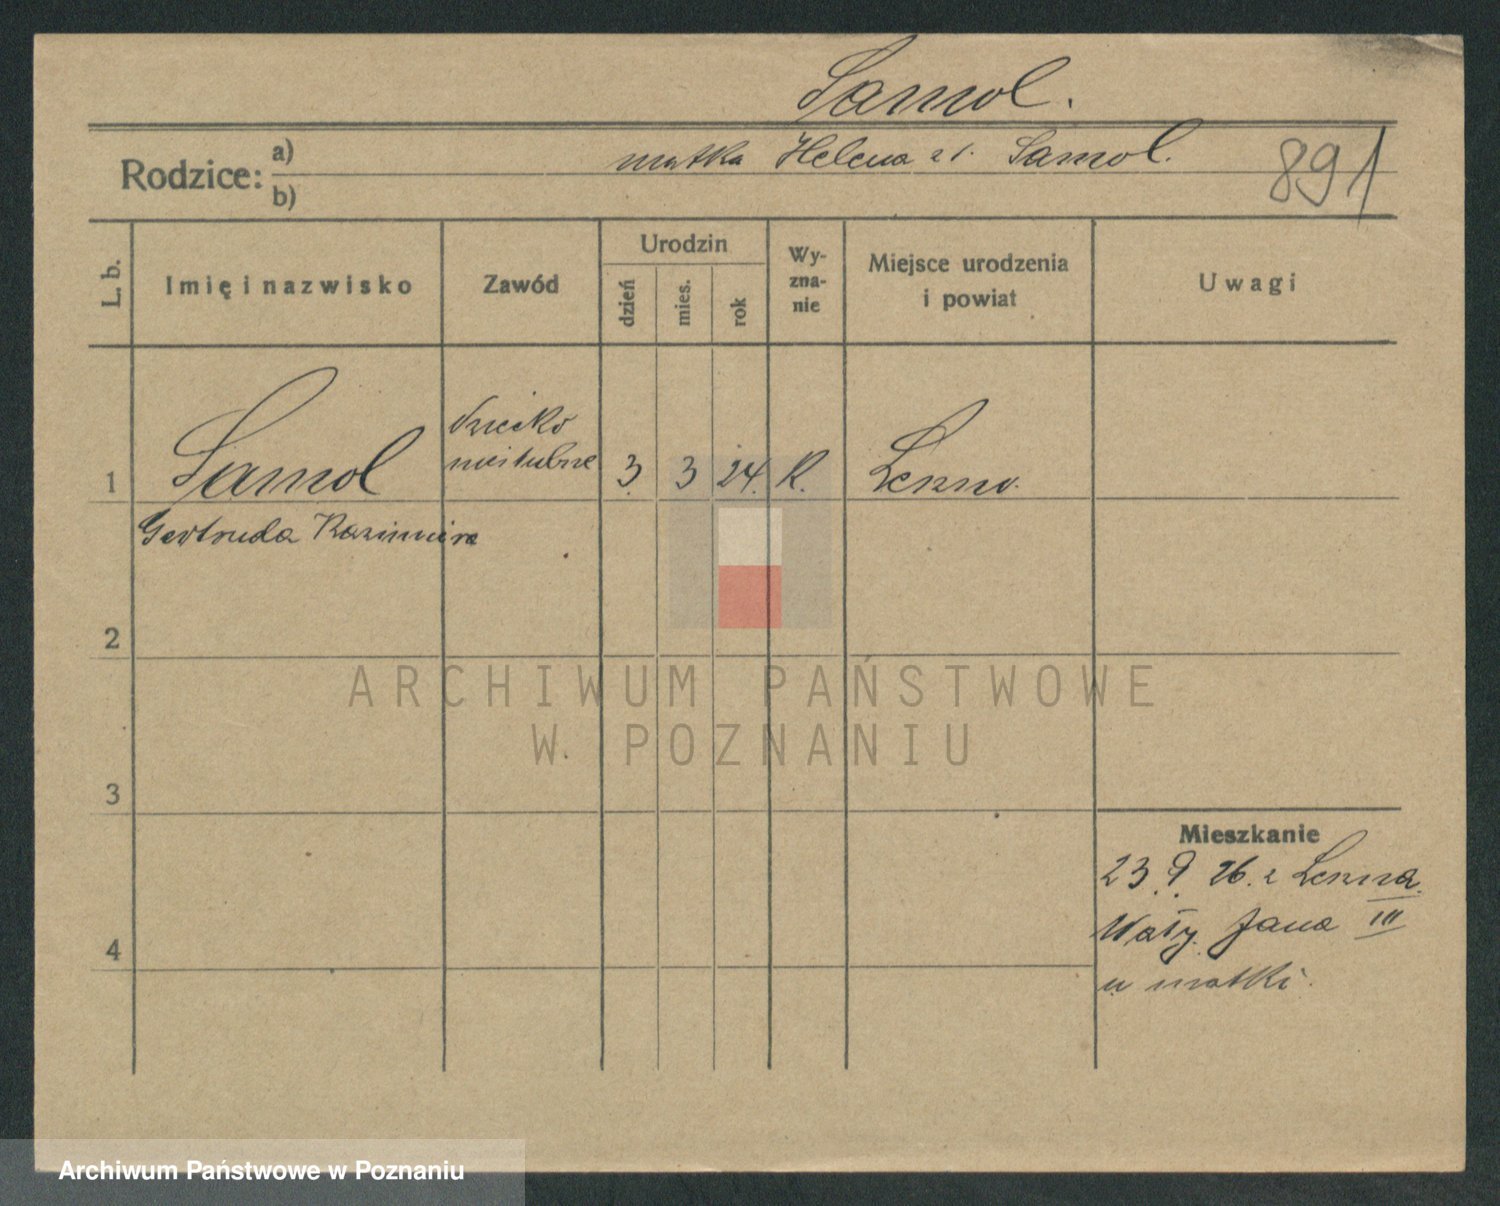 Samol.
Rodzice: a) matka Helena zd. Samol.
b)
891
L. b. Imię i nazwisko Zawód Urodzin dzień mies. rok Wy-zna-nie Miejsce urodzenia i powiat Uwagi
1 Samol dziecko nieślubne 3 3 24. K. Leszno.
Gertruda Kazimiera
2
ARCHIWUM PAŃSTWOWE
W POZNANIU
3
Mieszkanie
23. 9. 26. z Leszna.
Wały Jana III
4
u matki.
Archiwum Państwowe w Poznaniu